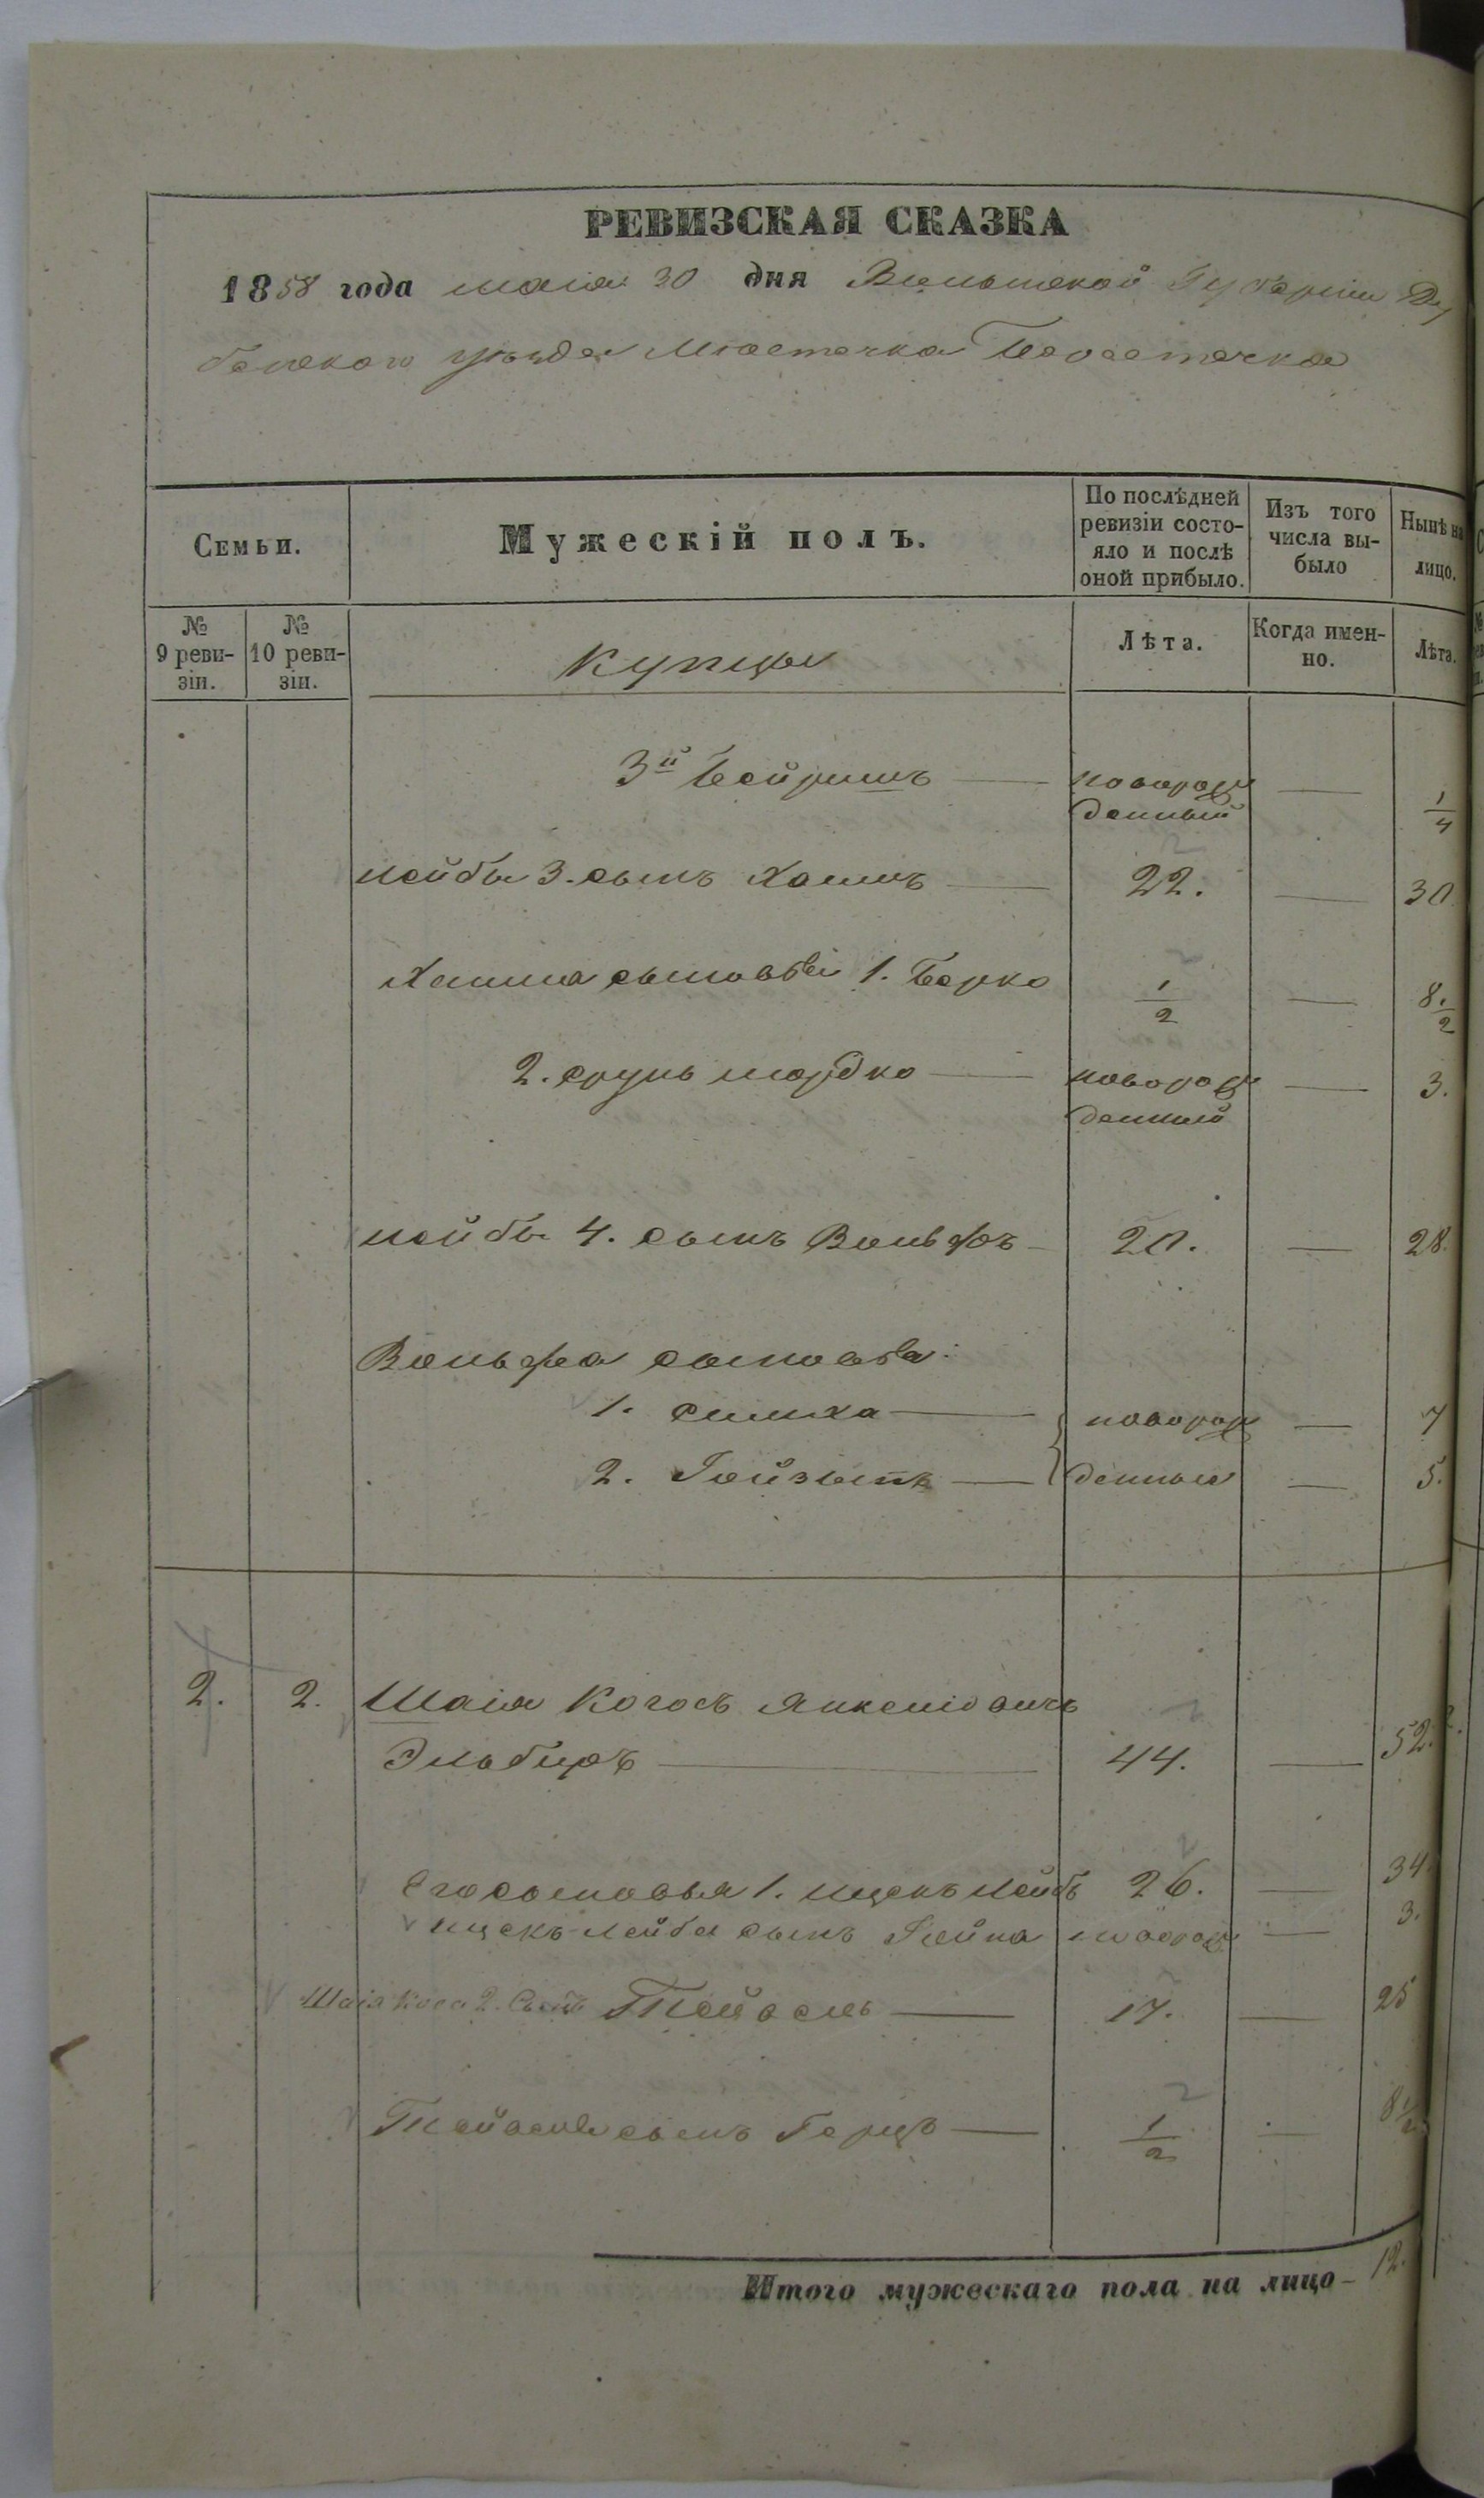 РЕВИЗСКАЯ СКАЗКА
1858 года мая 30 дня Волынской Губернии Ду
бенского уезда Местечка Берестечка
Семьи.
Мужескій полъ.
По послѣдней ревизіи состо-яло и послѣ оной прибыло.
Изъ того числа вы-было
Нынѣ на лицо.
№ 9 реви-зіи.
№ 10 реви-зіи.
Купцы
Лѣта.
Когда имен-но.
Лѣта.
3й Бейришъ — новорож — 1/4
денный
Лейбы 3. сынъ Хаимъ — 22. — 30
Хаима сыновья 1. Берко 1/2 — 8.1/2
2. Сруль Мордко — новорож — 3.
денный
Лейбы 4. сынъ Вольфъ — 20. — 28.
Вольфа сыновья:
1. Симха — новорож — 7
2. — денные — 5.
2. 2. Шаія Янкелiовичъ
44. — 52.
Его сыновья 1. Ицекъ Лейбъ 26. — 34.
Ицекъ-Лейбы сынъ — 3.
2. Сынъ — 17. — 25
сынъ Герцъ — 1/2 — 8 1/2
Итого мужескаго пола на лицо — 12.